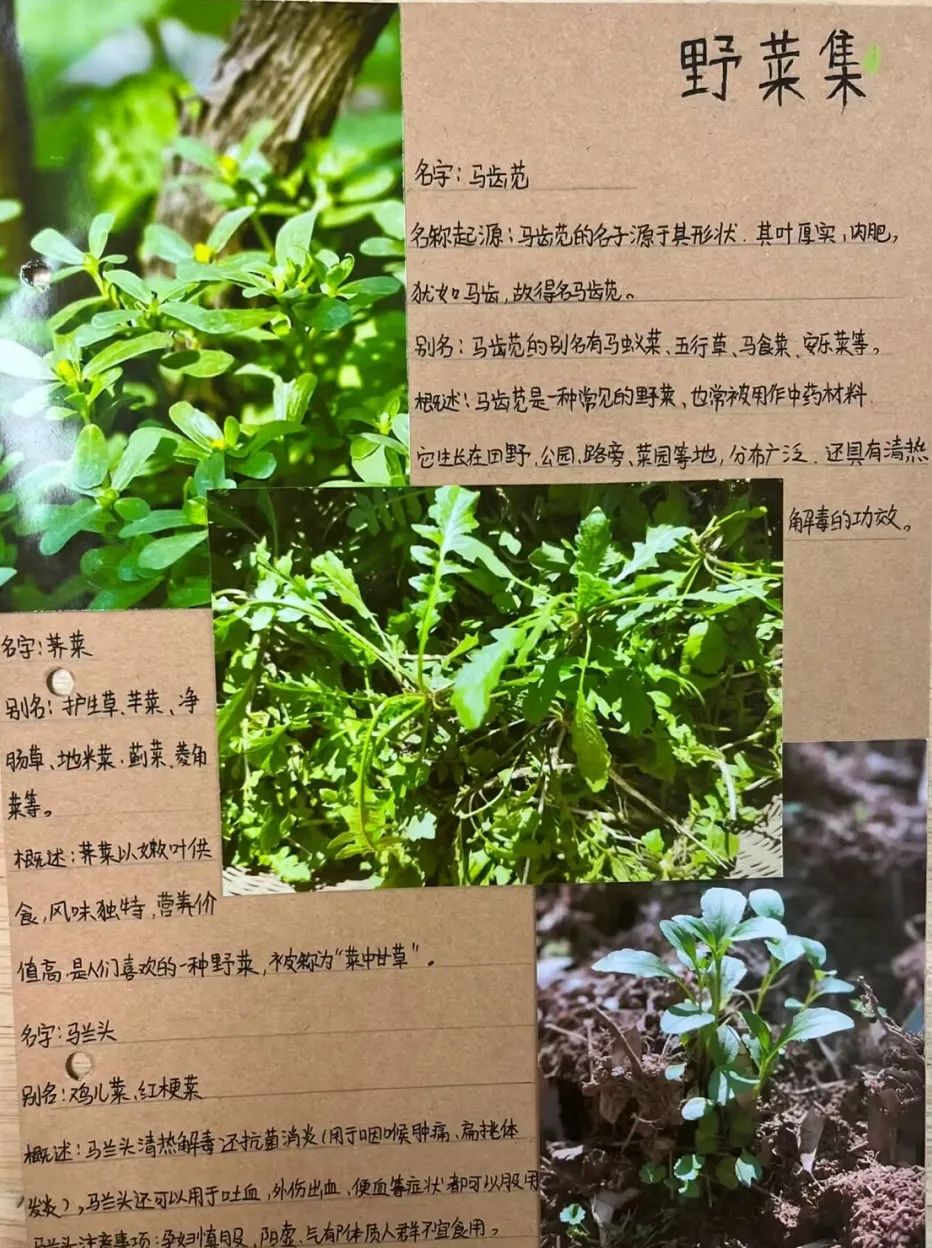 野菜集
名字：马齿苋
名称起源：马齿苋的名子源于其形状．其叶厚实，内肥，
犹如马齿，故得名马齿苋。
别名：马齿苋的别名有马蚁菜、五行草、马食菜、安乐菜等。
概述：马齿苋是一种常见的野菜，也常被用作中药材料．
它生长在田野，公园、路旁、菜园等地，分布广泛．还具有清热
解毒的功效。
名字：荠菜
别名：护生草、芊菜、净
肠草、地米菜．蓟菜、菱角
菜等。
概述：荠菜以嫩叶供
食，风味独特，营养价
值高 是人们喜欢的一种野菜，被称为“菜中甘草”。
名字：马兰头
别名：鸡儿菜、红梗菜
概述：马兰头清热解毒还抗菌消炎（用于咽喉肿痛、扁挑体
发炎），马兰头还可以用于吐血，外伤出血、便血等症状都可以服用
马兰头注意事项：孕妇慎服、阳虚、气郁体质人群不宜食用。